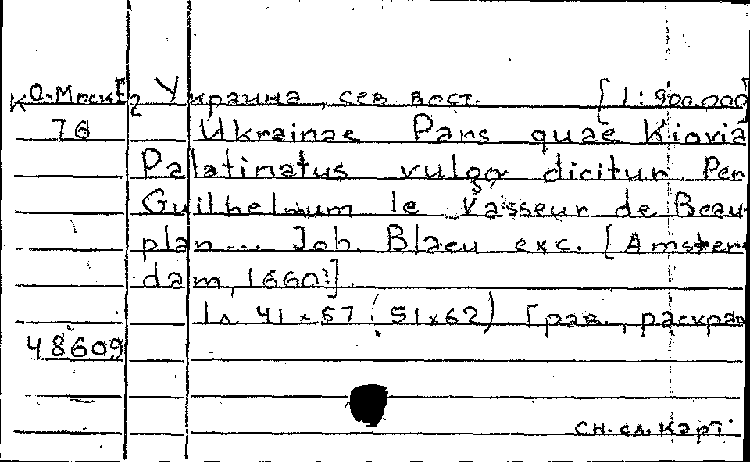 К О-Мпск Е2 Украина, сев вост. [1:900.000]
76 Ukrainae Pars quae Kiovia
Palatinatus vulgo dicitur Per
Guilhelmum le Vasseur de Beau-
plan... Joh. Blaeu exc. [Amster-
dam, 1660?]
1л 41×57 (51×62) Грав., раскраш
48609
сн. сл. карт.